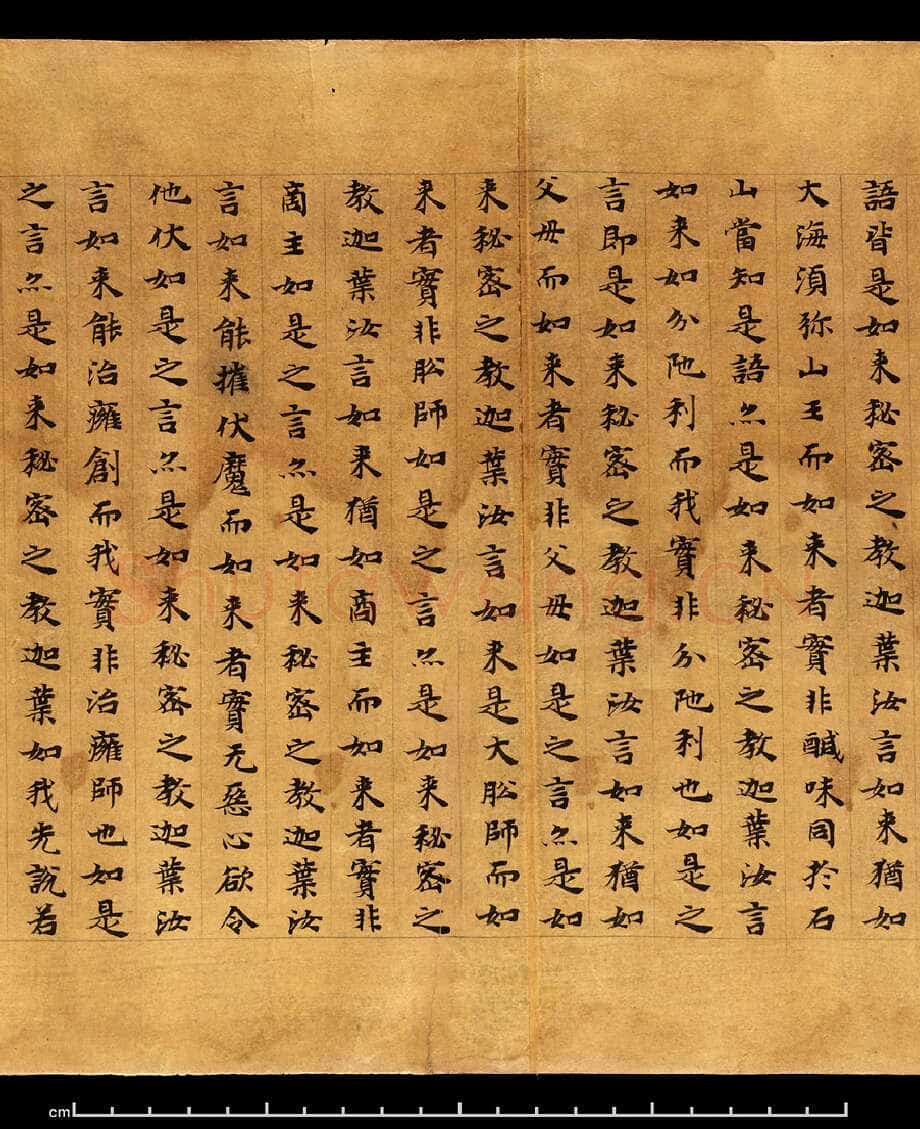 語皆是如来秘密之教迦葉汝言如来猶如
大海湏弥山王而如来者實非醎味同於石
山當知是語亦是如来秘密之教迦葉汝言
如来如分陁利而我實非分陁利也如是之
言即是如来秘密之教迦葉汝言如来猶如
父母而如来者實非父母如是之言亦是如
来秘密之教迦葉汝言如来是大舩師而如
来者實非舩師如是之言亦是如来秘密之
教迦葉汝言如来猶如商主而如来者實非
商主如是之言亦是如来秘密之教迦葉汝
言如来能摧伏魔而如来者實无惡心欲令
他伏如是之言亦是如来秘密之教迦葉汝
言如来能治癰創而我實非治癰師也如是
之言亦是如来秘密之教迦葉如我先説若
shufawang.CN
cm